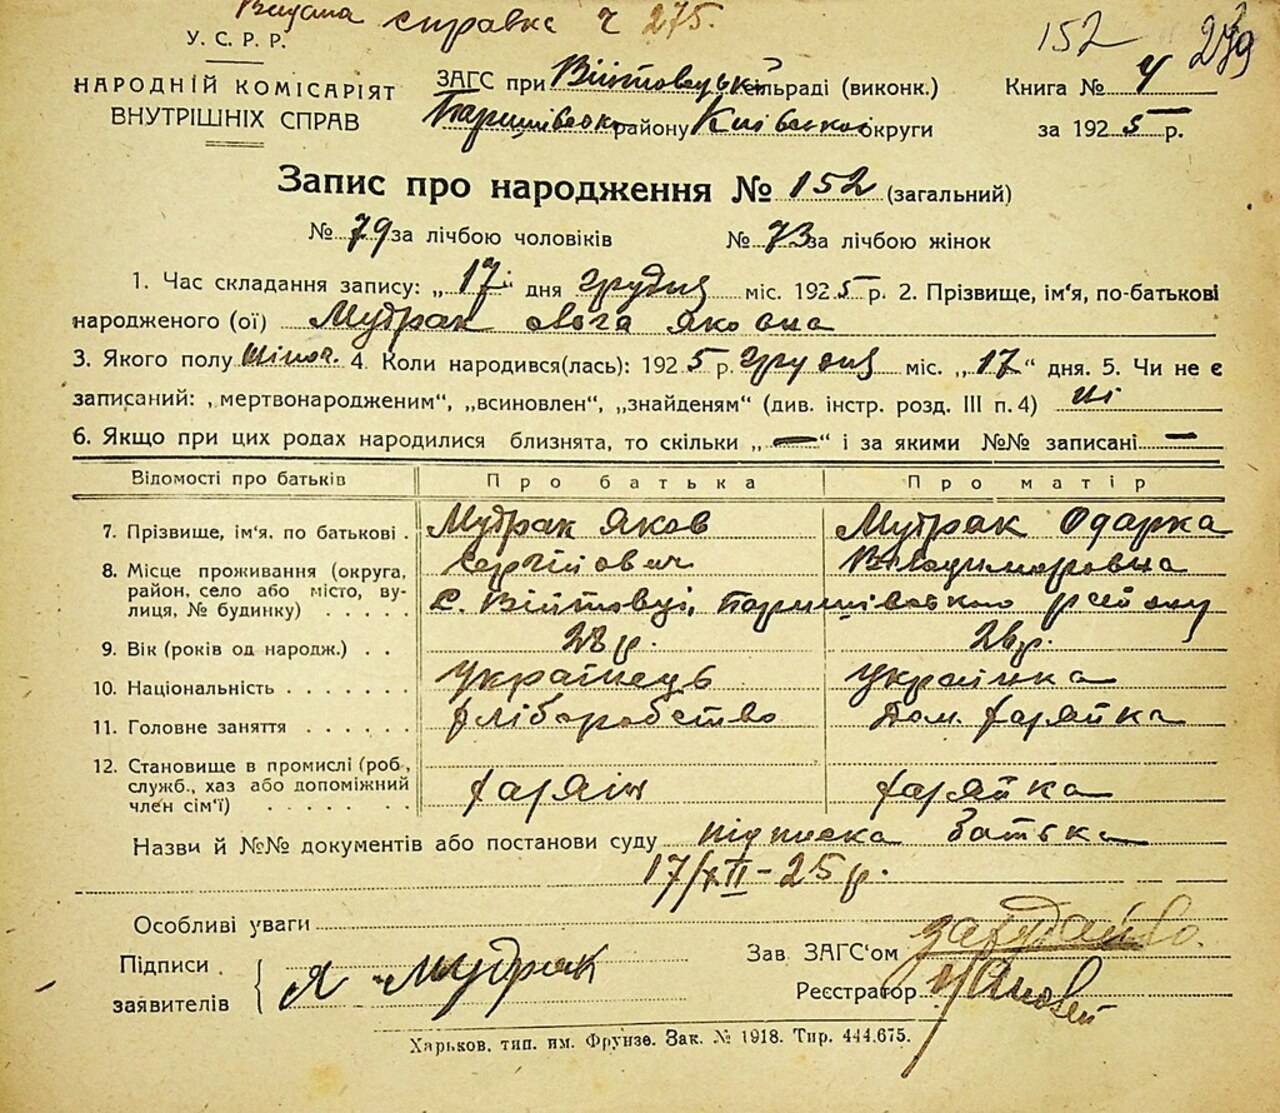 Видана справка ч 275.
У. С. Р. Р.
152 239
НАРОДНІЙ КОМІСАРІЯТ
ВНУТРІШНІХ СПРАВ
ЗАГС при Війтовецькій сільраді (виконк.)
Баришівськ району Київської округи
Книга № 4
за 1925 р.
Запис про народження № 152 (загальний)
№ 79 за лічбою чоловіків № 73 за лічбою жінок
1. Час складання запису: „17" дня грудня міс. 1925 р. 2. Прізвище, ім'я, по-батькові
народженого (ої) Мудрак Ольга Яковна
3. Якого полу жіноч. 4. Коли народився(лась): 1925 р. грудня міс. „17" дня. 5. Чи не є
записаний: „мертвонародженим", „всиновлен", „знайденям" (див. інстр. розд. III п. 4) ні
6. Якщо при цих родах народилися близнята, то скільки „—" і за якими №№ записані —
Відомості про батьків Про батька Про матір
7. Прізвище, ім'я, по батькові . Мудрак Яков Мудрак Одарка
Сергійович Владимировна
8. Місце проживання (округа,
район, село або місто, ву-
лиця, № будинку) . . . . . С. Війтовці, Баришівського району
9. Вік (років од народж.) . . 28 р. 26 р.
10. Національність . . . . . . . Українець Українка
11. Головне заняття . . . . . . хліборобство Дом. хазяйка
12. Становище в промислі (роб.,
служб., хаз або допоміжний
член сім'ї) . . . . . . . хазяїн хазяйка
Назви й №№ документів або постанови суду підписка батька
17/XII-25 р.
Особливі уваги
Підписи
заявителів { Я Мудрак
Зав ЗАГС'ом
Реєстратор
Харьков, тип. им. Фрунзе. Зак. № 1918. Тир. 444.675.